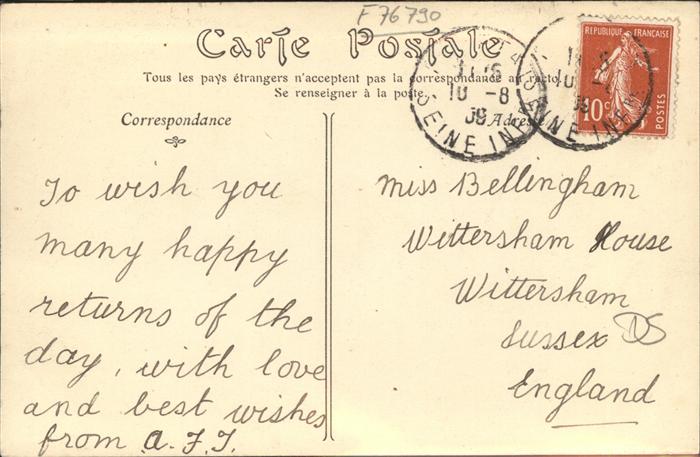 F 76790
Carte Postale
Tous les pays étrangers n'acceptent pas la correspondance au recto.
Se renseigner à la poste.
RÉPUBLIQUE FRANÇAISE
10c
POSTES
10 -8
09
SEINE INF
Correspondance
Adresse
To wish you
many happy
returns of the
day, with love
and best wishes
from a.F.J.
Miss Bellingham
Wittersham House
Wittersham
Sussex DS
England